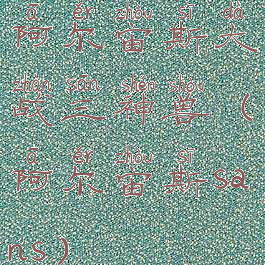 ā ěr zhòu sī dà
阿尔宙斯大
zhàn sān shén shòu
战三神兽（
ā ěr zhòu sī
阿尔宙斯sa
ns）